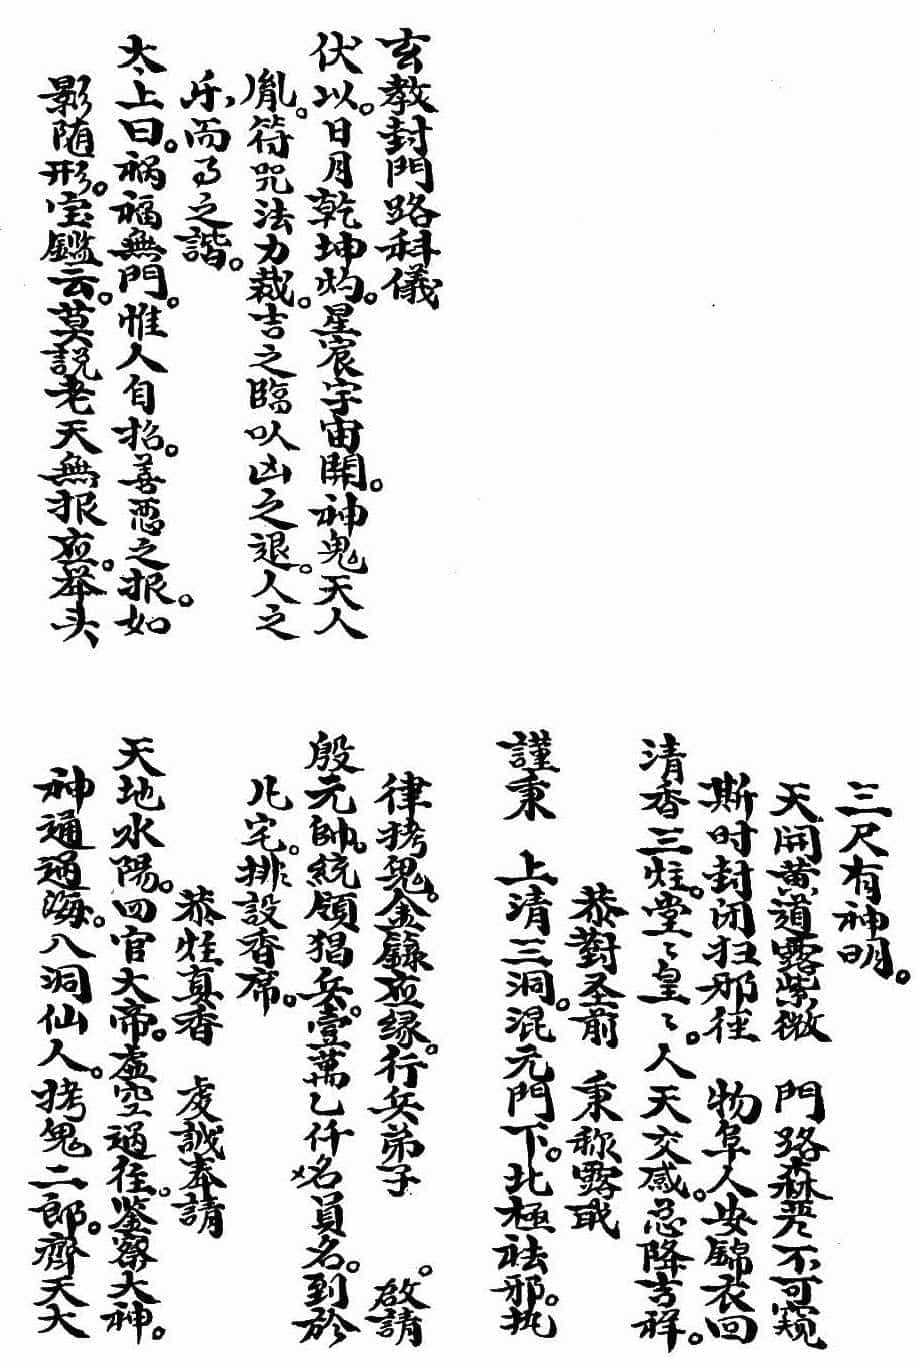 玄教封門路科儀
伏以。日月乾坤灼。星宸宇宙開。神鬼天人
胤。符咒法力裁。吉之臨以凶之退。人之
乐而为之諧。
太上曰。祸福無門。惟人自招。善恶之报。如
影随形。宝鑑云。莫説老天無报应。举头
三尺有神明。
天開黄道露紫微　門路森严不可窥
斯时封闭扫邪径　物阜人安錦衣回
清香三炷。堂〻皇〻。人天交感。忽降吉祥。
恭對圣前　秉称露职
謹秉　上清三洞。混元門下。北極祛邪。执
律拷鬼。金籙应缘。行兵弟子　。啟請
殷元帥。統領猖兵。壹萬乙仟名員名。到於
凡宅。排設香席。
恭炷真香　虔誠奉請
天地水陽。四官大帝。虚空過往。鉴察大神。
神通通海。八洞仙人。拷鬼二郎。齊天大